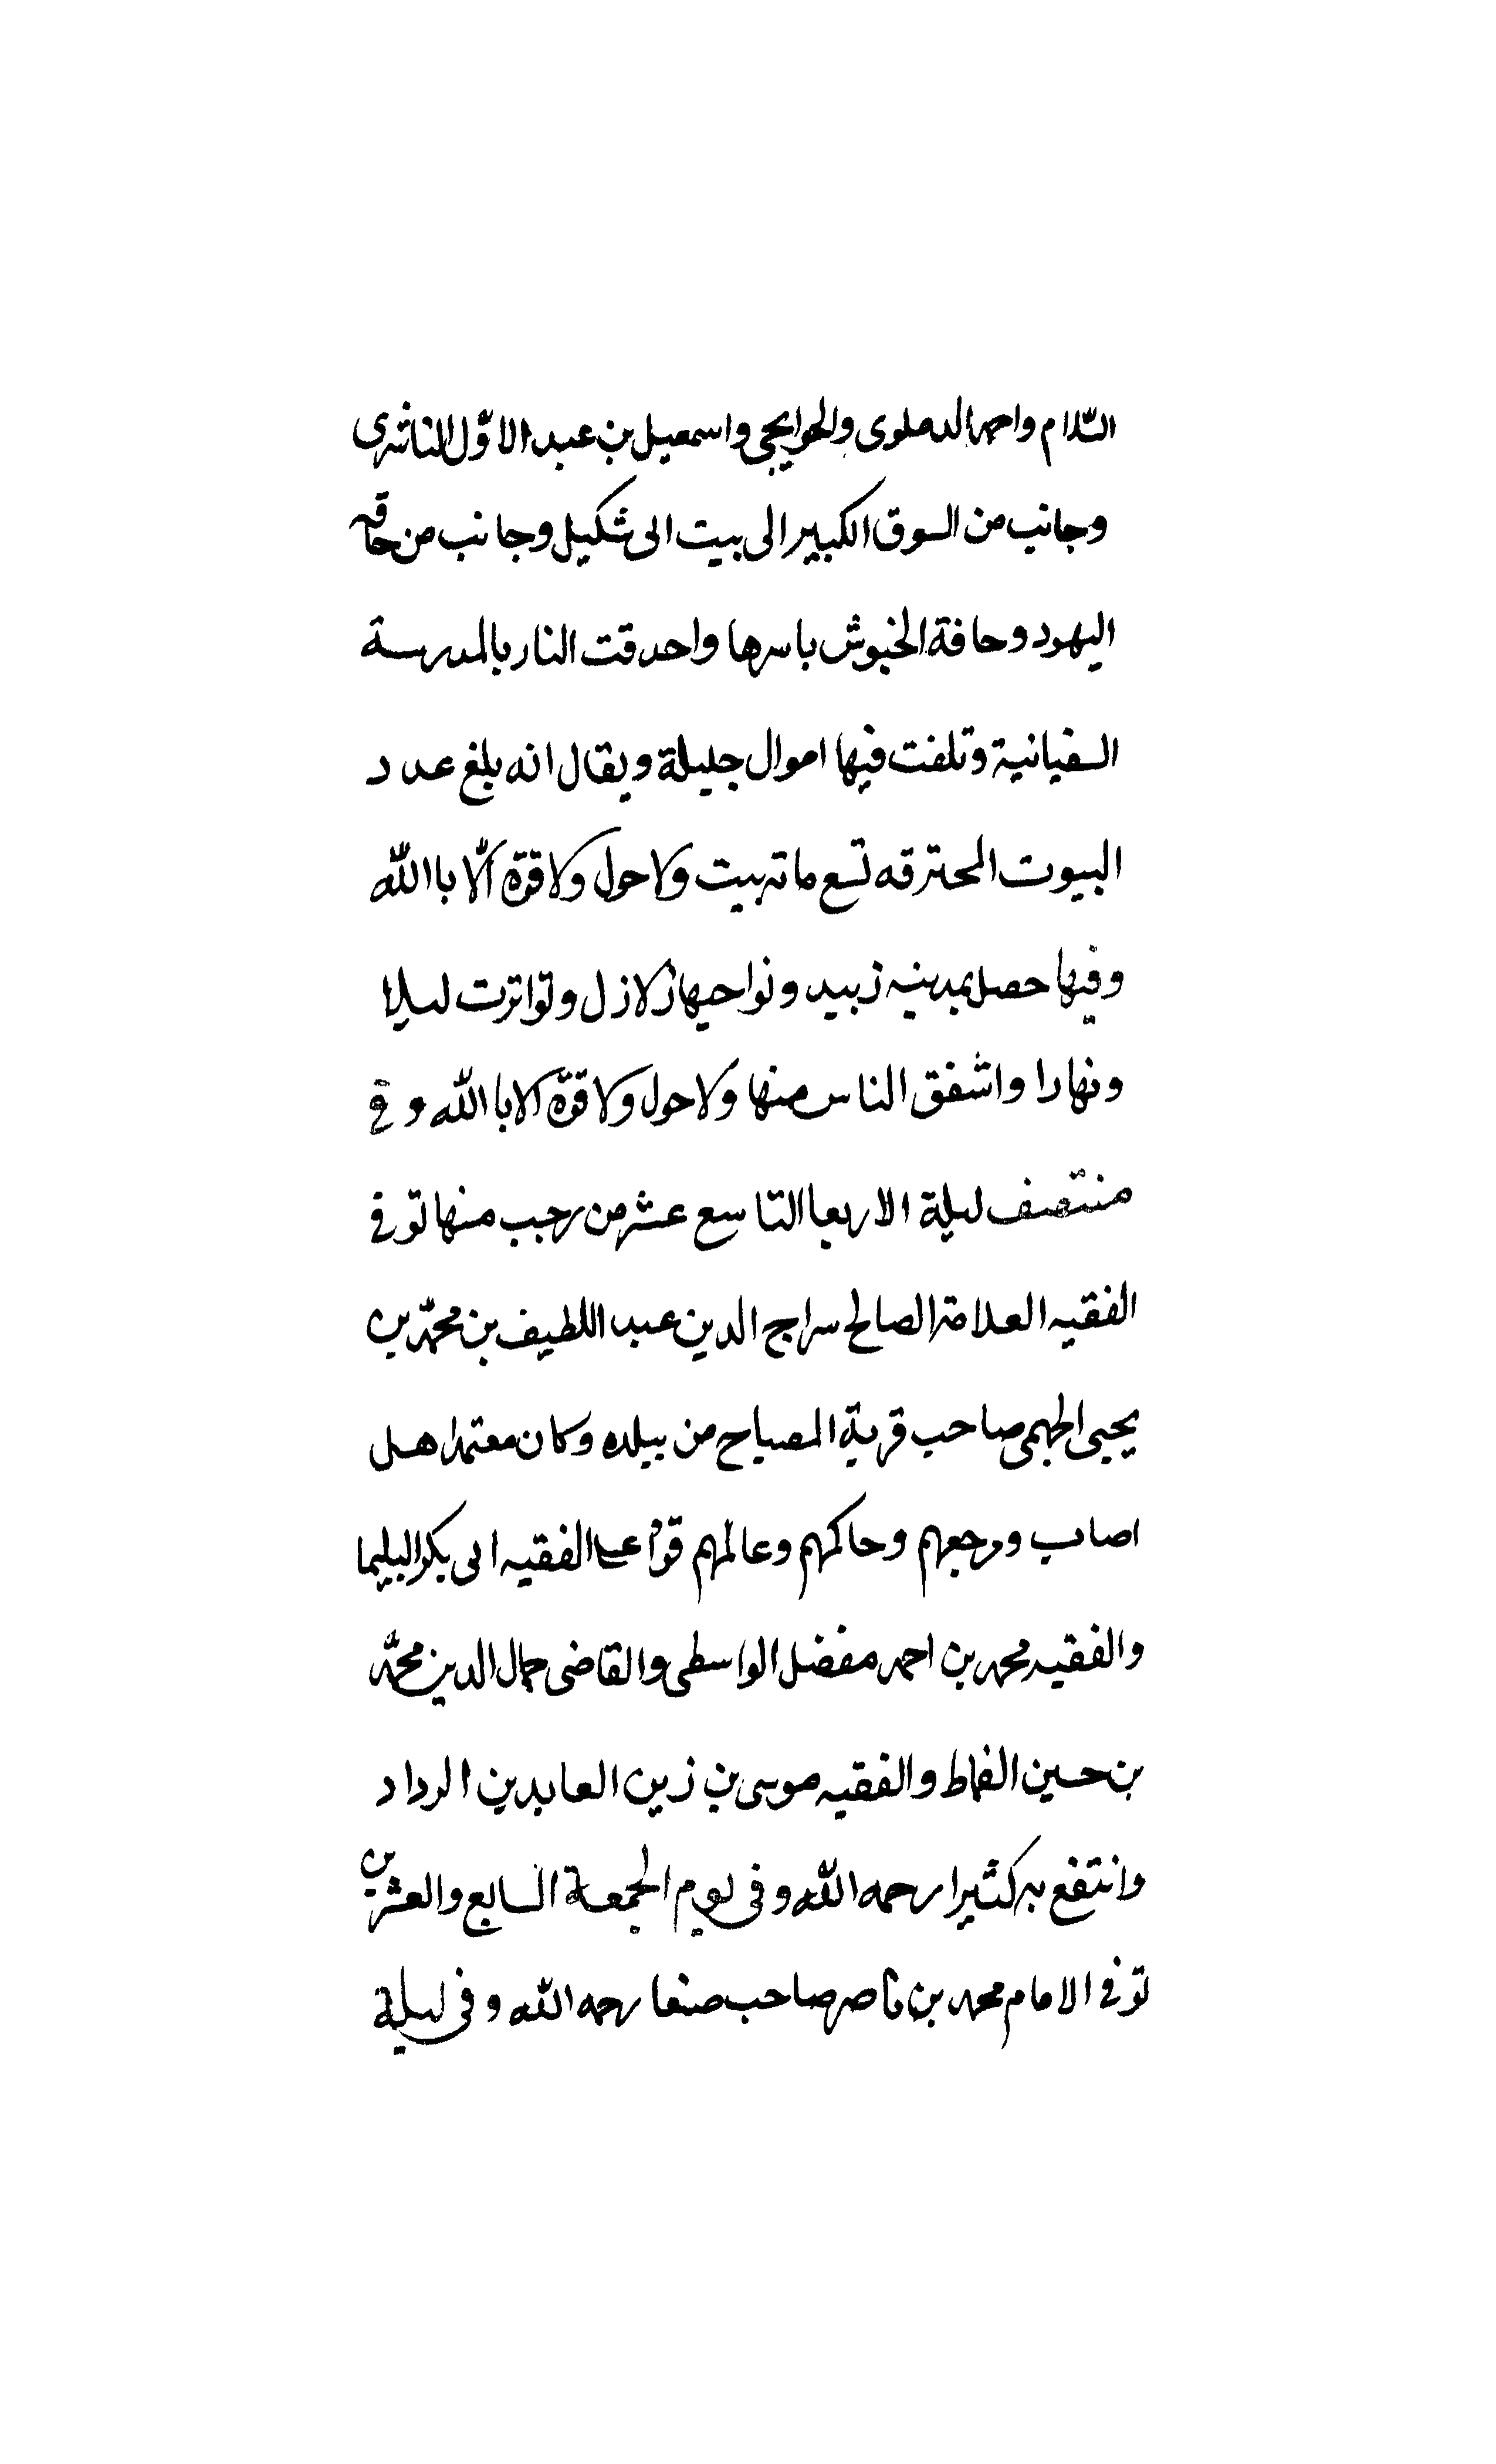 السّلام واحمد الدملوى والحوايجى واسمعيل بن عبد الاوّل الناشرى
وجانب من السوق الكبير الى بيت الى شكيل وجانب من حافه
اليهود وحافة الخبوش باسرها واحدقت النار بالمدرسة
السفيانية وتلفت فيها اموال جليلة ويقال انه بلغ عدد
البيوت المحترقه تسع ماته بيت ولا حول ولا قوة الّا با الله
وفيها حصل بمدينه زبيد ونواحيها زلازل وتواترت ليلا
ونهارا واشفق الناس منها ولا حول ولا قوّة الا با الله وفى
منتصف ليلة الاربعا التاسع عشر من رجب منها توفى
الفقيه العلامة الصالح سراج الدين عبد اللطيف بن محمّد بن
يحيى الجهمى صاحب قرية المصباح من بيلده وكان معتمد اهل
اصاب ومرجعهم وحاكمهم وعالمهم قرا على الفقيه ابى بكر البليما
والفقيه محمد بن احمد مفضل الواسطى والقاضى جمال الدين محمّد
بن حسين القماط والفقيه موسى بن زين العابدين الرداد
وانتفع به كثيرا رحمه الله وفى يوم الجمعة السابع والعشرين
توفى الامام محمد بن ناصر صاحب صنعا رحمه الله وفى ليلة